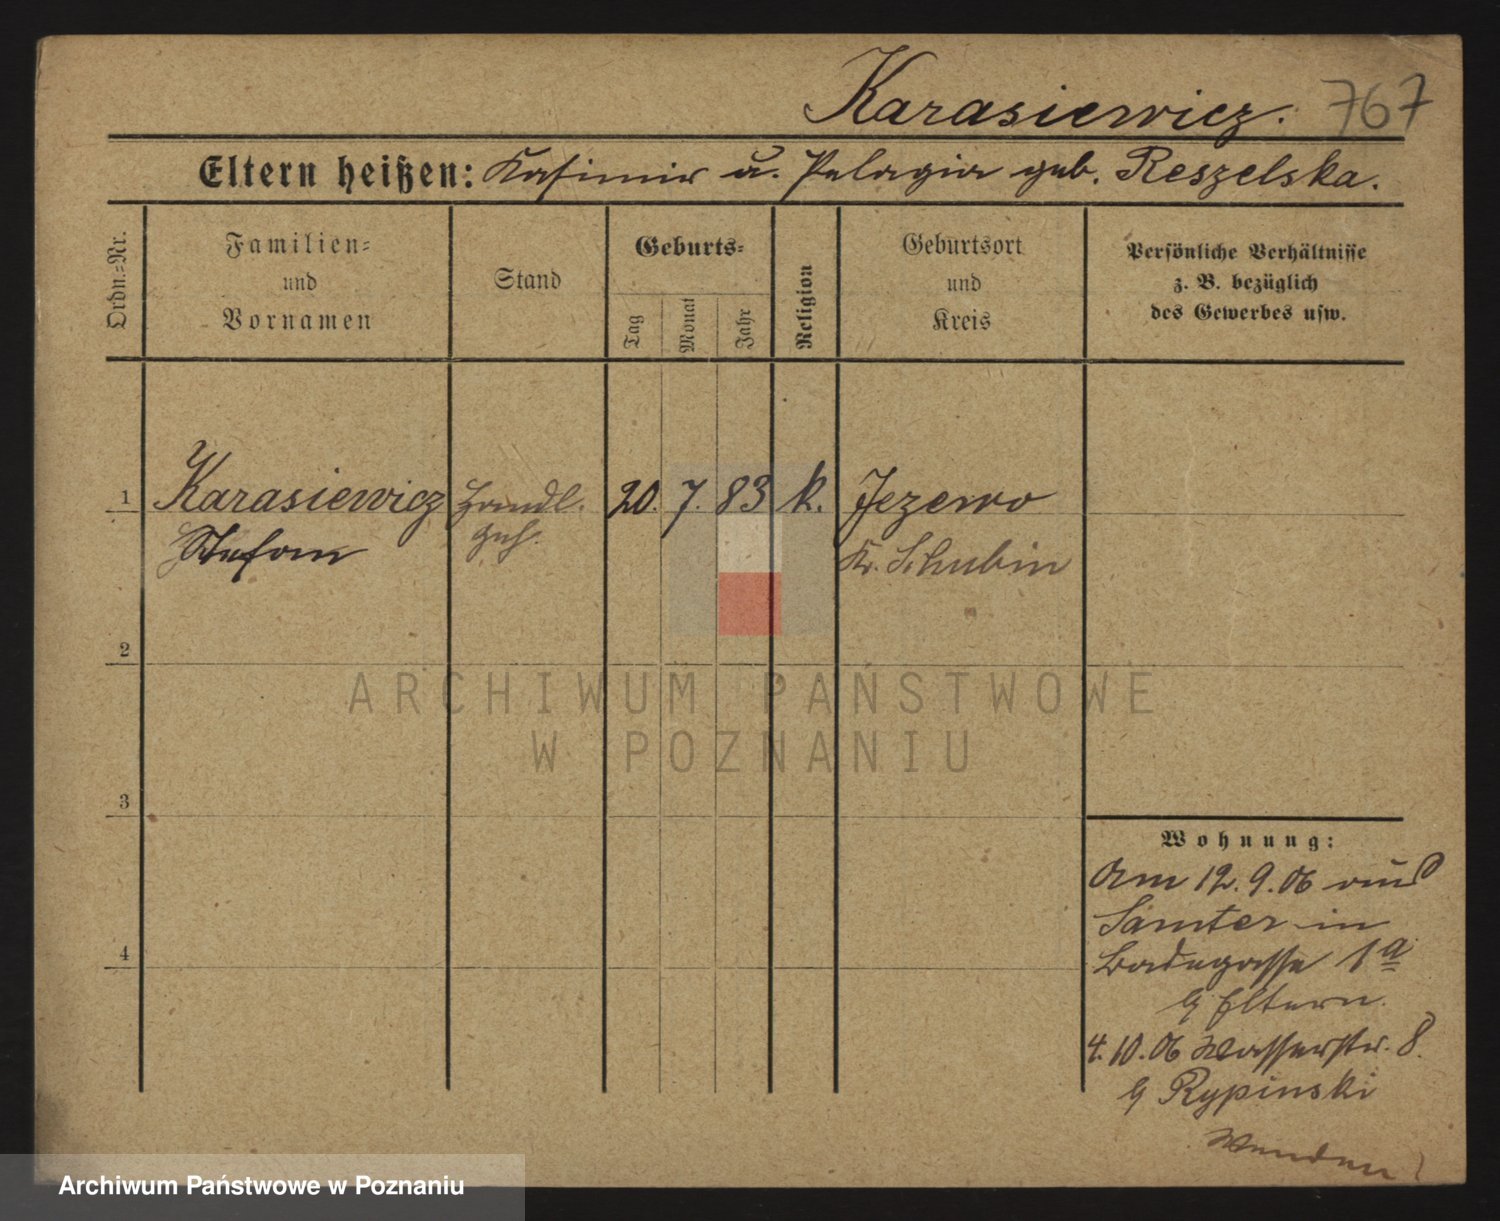 Karasiewicz. 767
Eltern heißen: Kasimir u. Pelagia geb. Reszelska.
Ordn.=Nr.
Familien=
und
Vornamen
Stand
Geburts=
Tag
Monat
Jahr
Religion
Geburtsort
und
Kreis
Persönliche Verhältnisse
z. B. bezüglich
des Gewerbes usw.
1 Karasiewicz Handl. 20. 7. 83 k. Jezewo
Stefan Geh. Kr. Schubin
2
ARCHIWUM PAŃSTWOWE
W POZNANIU
3
Wohnung:
Am 12.9.06 aus
Samter in
Badegasse 1a
b/ Eltern.
4
4.10.06 Wasserstr. 8.
b/ Rypinski
Wenden!
Archiwum Państwowe w Poznaniu